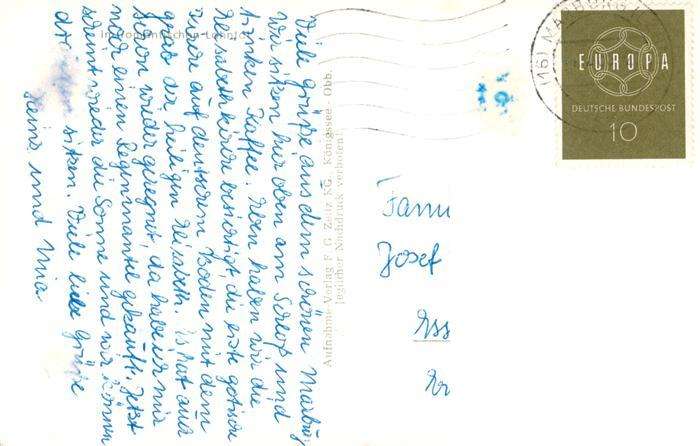 Viele Grüße aus dem schönen Marburg
Wir sitzen hier oben am Schloß und
trinken Kaffee. Eben haben wir die
Elisabeth kirche besichtigt, die erste gotische
Kirche auf deutschem Boden mit dem
grab der heiligen Elisabeth. Es hat auch
schon wieder geregnet, da habe ich mir
noch einen Regenmantel gekauft. Jetzt
scheint wieder die Sonne und wir können
draußen sitzen. Viele liebe Grüße
Heinz und Mia
Aufnahme-Verlag F. G. Zeitz KG., Königssee - Obb.
Jeglicher Nachdruck verboten!
(16) MARBURG
EUROPA
DEUTSCHE BUNDESPOST
10
Fam
Josef
Ess